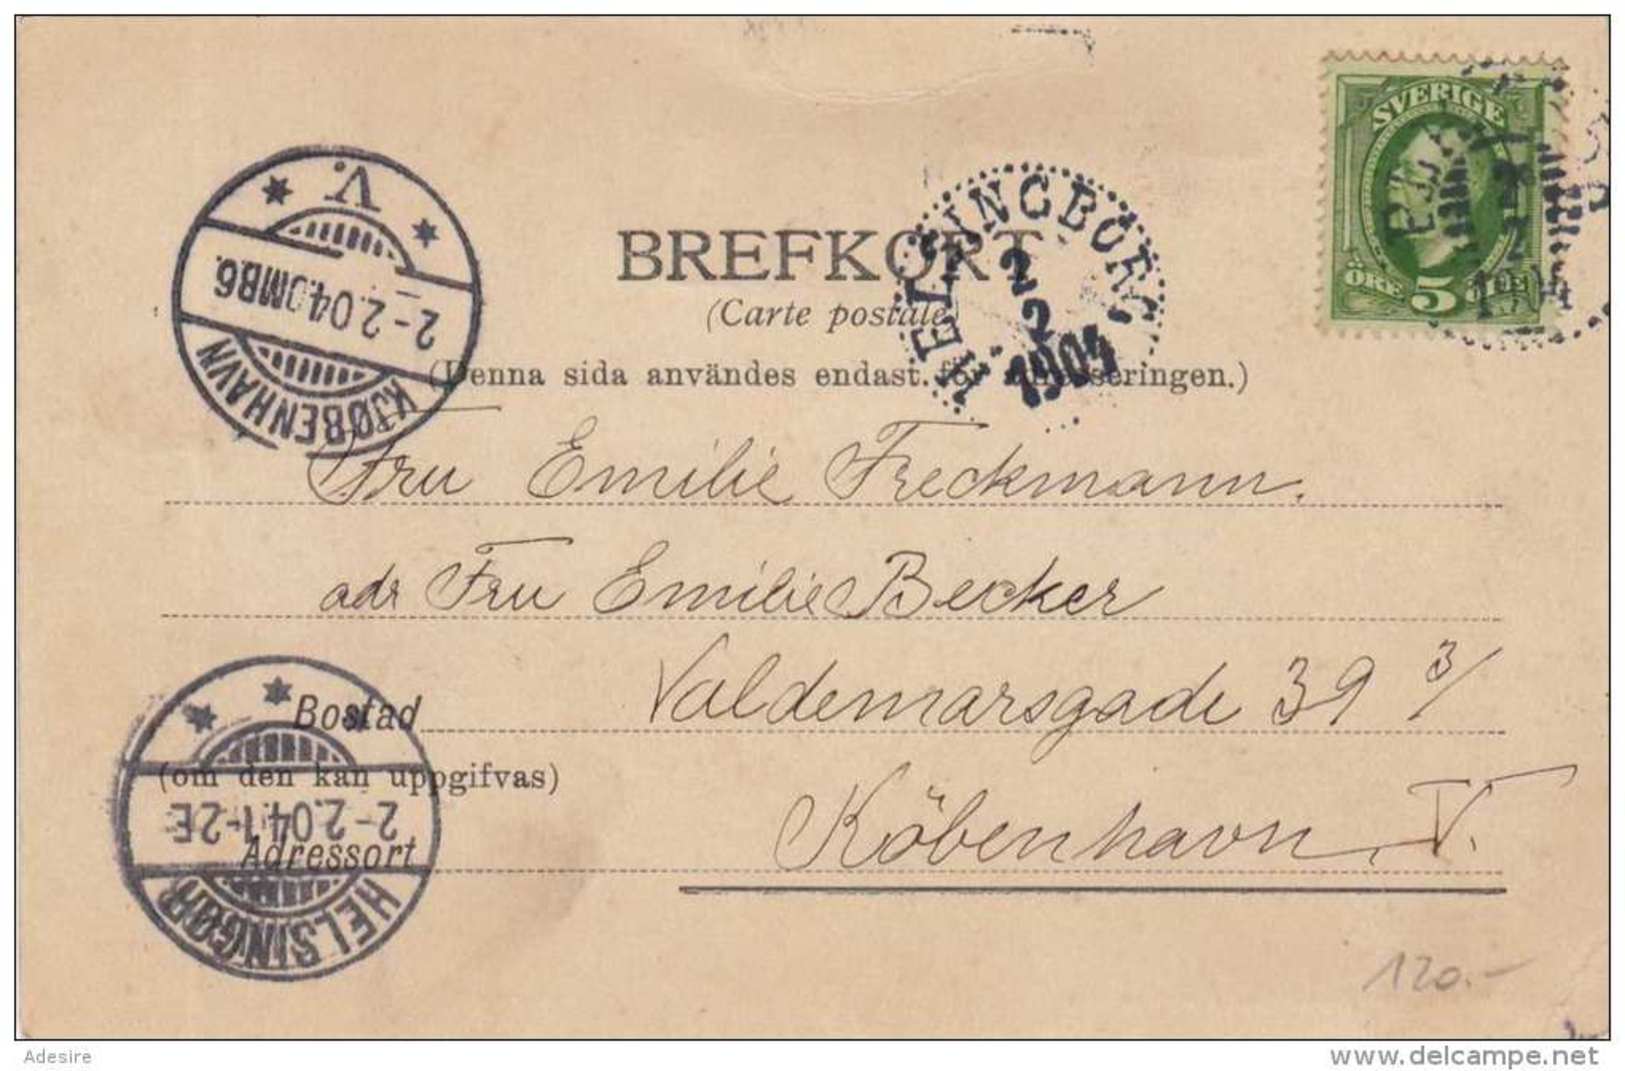 SVERIGE
ÖRE 5 ÖRE
V.
2-2.04. OMB6.
KJØBENHAVN
HELSINGBORG
2
2
1904
BREFKORT
(Carte postale)
(Denna sida användes endast för adresseringen.)
Fru Emilie Freckmann.
adr Fru Emilie Becker
Bostad Valdemarsgade 39 3/
(om den kan uppgifvas)
København V.
Adressort
2-2.04.1-2E
HELSINGØR
120.-
Adesire
www.delcampe.net